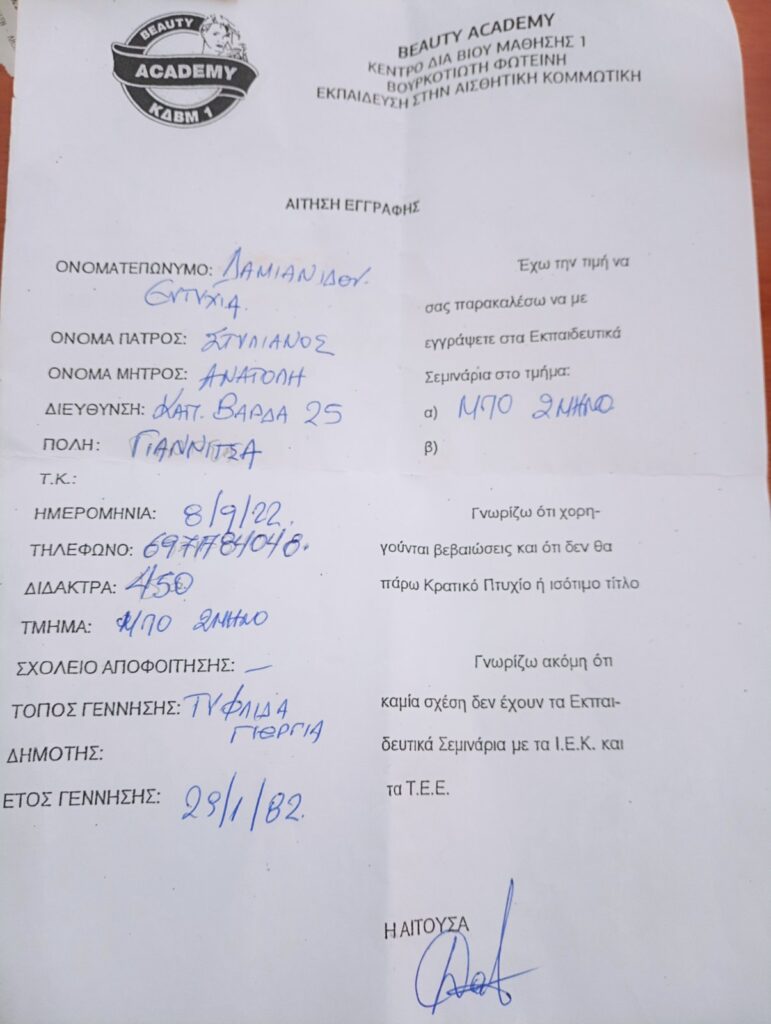 BEAUTY
ACADEMY
ΚΔΒΜ 1
BEAUTY ACADEMY
ΚΕΝΤΡΟ ΔΙΑ ΒΙΟΥ ΜΑΘΗΣΗΣ 1
ΒΟΥΡΚΟΤΙΩΤΗ ΦΩΤΕΙΝΗ
ΕΚΠΑΙΔΕΥΣΗ ΣΤΗΝ ΑΙΣΘΗΤΙΚΗ ΚΟΜΜΩΤΙΚΗ
ΑΙΤΗΣΗ ΕΓΓΡΑΦΗΣ
ΟΝΟΜΑΤΕΠΩΝΥΜΟ: ΔΑΜΙΑΝΙΔΟΥ
ΕΥΤΥΧΙΑ.
ΟΝΟΜΑ ΠΑΤΡΟΣ: ΣΤΥΛΙΑΝΟΣ
ΟΝΟΜΑ ΜΗΤΡΟΣ: ΑΝΑΤΟΛΗ
ΔΙΕΥΘΥΝΣΗ: ΚΑΠ. ΒΑΡΔΑ 25
ΠΟΛΗ: ΓΙΑΝΝΙΤΣΑ
Τ.Κ.:
ΗΜΕΡΟΜΗΝΙΑ: 8/9/22.
ΤΗΛΕΦΩΝΟ:
ΔΙΔΑΚΤΡΑ: 450
ΤΜΗΜΑ: ΜΠΟ 2ΜΗΝΟ
ΣΧΟΛΕΙΟ ΑΠΟΦΟΙΤΗΣΗΣ: —
ΤΟΠΟΣ ΓΕΝΝΗΣΗΣ: ΤΥΦΛΙΔΑ
ΓΙΕΡΓΙΑ
ΔΗΜΟΤΗΣ:
ΕΤΟΣ ΓΕΝΝΗΣΗΣ: 29/1/82.
Έχω την τιμή να
σας παρακαλέσω να με
εγγράψετε στα Εκπαιδευτικά
Σεμινάρια στο τμήμα:
α) ΜΠΟ 2ΜΗΝΟ
β)
Γνωρίζω ότι χορη-
γούνται βεβαιώσεις και ότι δεν θα
πάρω Κρατικό Πτυχίο ή ισότιμο τίτλο
Γνωρίζω ακόμη ότι
καμία σχέση δεν έχουν τα Εκπαι-
δευτικά Σεμινάρια με τα Ι.Ε.Κ. και
τα Τ.Ε.Ε.
Η ΑΙΤΟΥΣΑ